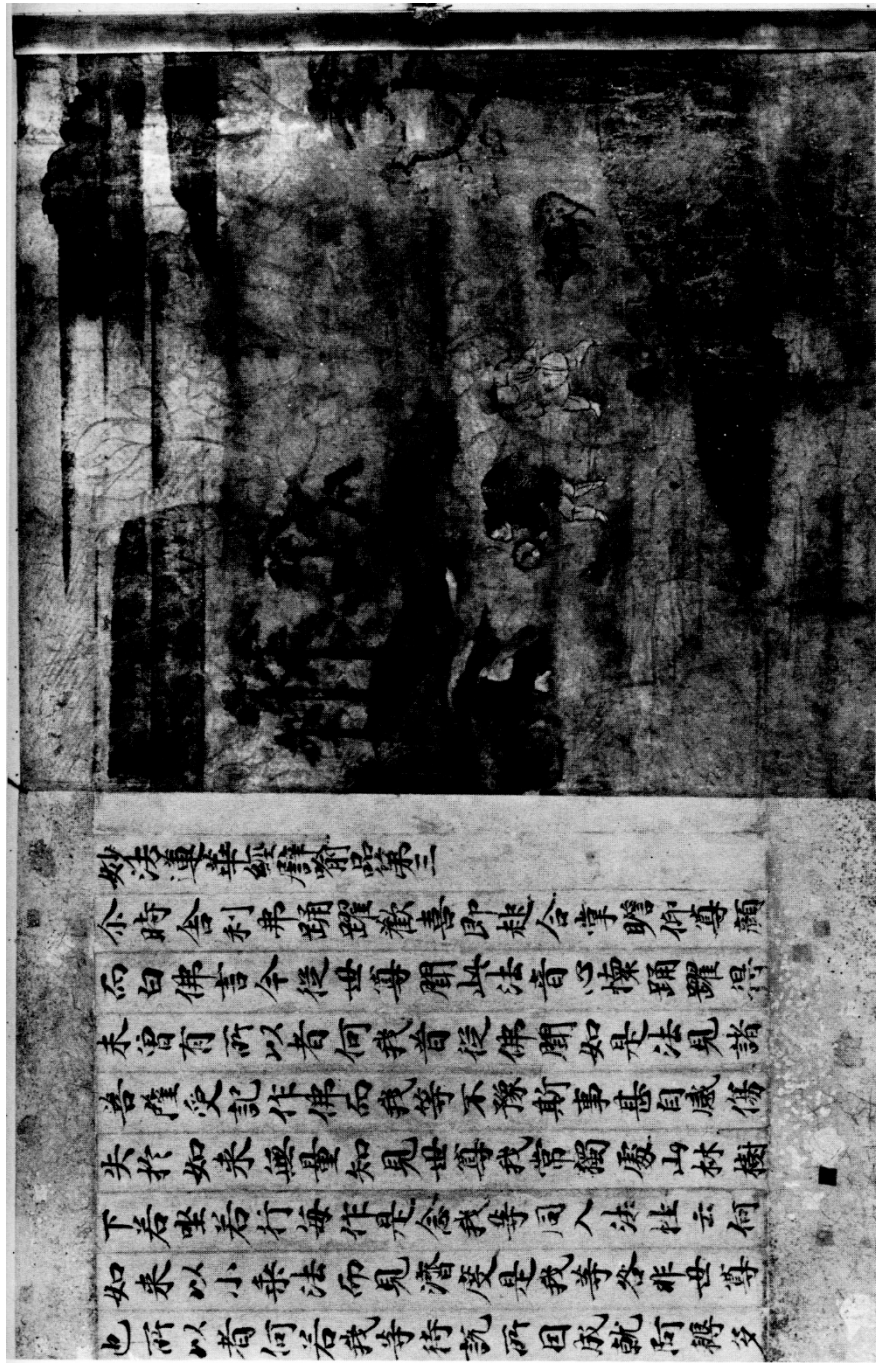 妙法蓮華經譬喻品第三
尒時舍利弗踊躍歡喜即起合掌瞻仰尊顏
而白佛言今從世尊聞此法音心懷踊躍得
未曾有所以者何我昔從佛聞如是法見諸
菩薩受記作佛而我等不豫斯事甚自感傷
失於如来無量知見世尊我常獨處山林樹
下若坐若行每作是念我等同入法性云何
如来以小乗法而見濟度是我等咎非世尊
也所以者何若我等待說所因成就阿耨多